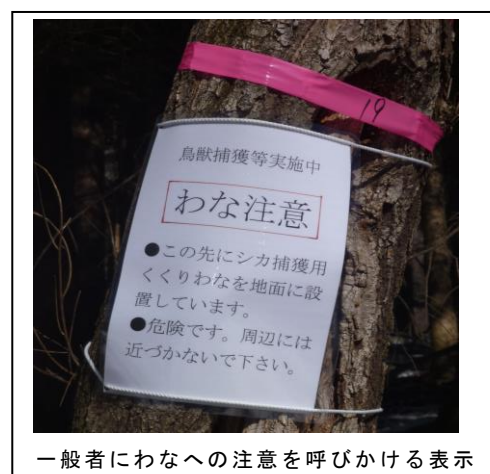 19
鳥獣捕獲等実施中
わな注意
●この先にシカ捕獲用
くくりわなを地面に設
置しています。
●危険です。周辺には
近づかないで下さい。
一般者にわなへの注意を呼びかける表示